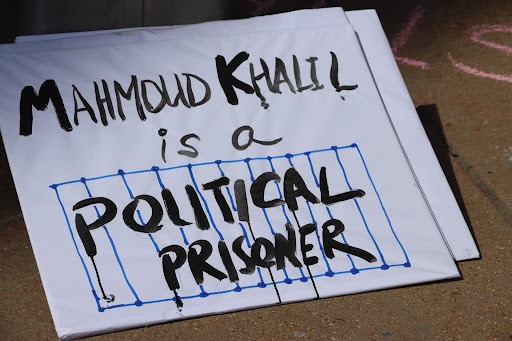 MAHMOUD KHALIL
is a
POLITICAL
PRISONER